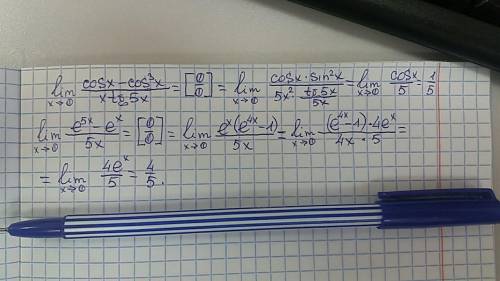 lim x→0 (cosx − cos³x)/(x tg 5x) = [0/0] = lim x→0 (cosx · sin²x)/(5x² · (tg 5x)/(5x)) = lim x→0 cosx/5 = 1/5
lim x→0 (e^{5x} − e^x)/(5x) = [0/0] = lim x→0 (e^x(e^{4x} − 1))/(5x) = lim x→0 ((e^{4x} − 1) · 4e^x)/(4x · 5) =
= lim x→0 4e^x/5 = 4/5.